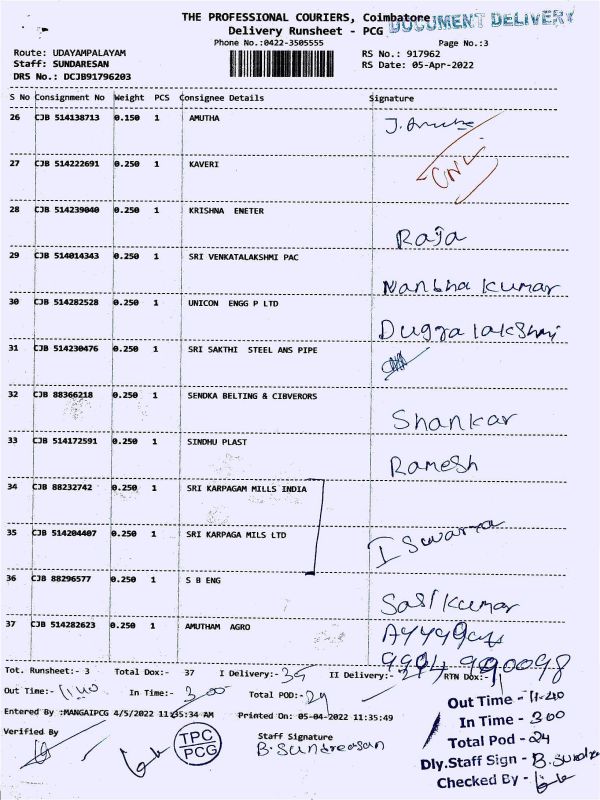 THE PROFESSIONAL COURIERS, Coimbatore
DOCUMENT DELIVERY
Delivery Runsheet - PCG
Phone No.:0422-3505555
Page No.:3
Route: UDAYAMPALAYAM
RS No.: 917962
Staff: SUNDARESAN
RS Date: 05-Apr-2022
DRS No.: DCJB91796203
S No Consignment No Weight PCS Consignee Details Signature
26 CJB 514138713 0.150 1 AMUTHA J. Amutha
27 CJB 514222691 0.250 1 KAVERI CNL
28 CJB 514239040 0.250 1 KRISHNA ENETER Raja
29 CJB 514014343 0.250 1 SRI VENKATALAKSHMI PAC Nanbha kumar
30 CJB 514282528 0.250 1 UNICON ENGG P LTD Dugga lakshmi
31 CJB 514230476 0.250 1 SRI SAKTHI STEEL ANS PIPE
32 CJB 88366218 0.250 1 SENDKA BELTING & CIBVERORS Shankar
33 CJB 514172591 0.250 1 SINDHU PLAST Ramesh
34 CJB 88232742 0.250 1 SRI KARPAGAM MILLS INDIA
35 CJB 514204407 0.250 1 SRI KARPAGA MILS LTD ISwarya
36 CJB 88296577 0.250 1 S B ENG Sasikumar
37 CJB 514282623 0.250 1 AMUTHAM AGRO
Tot. Runsheet:- 3 Total Dox:- 37 I Delivery:- II Delivery:- RTN Dox:-
Out Time:- 11.40 In Time:- 3.00 Total POD:- 24
Out Time - 11-40
Entered By :MANGAIPCG 4/5/2022 11:35:34 AM Printed On: 05-04-2022 11:35:49
In Time - 300
Verified By
TPC
PCG
Staff Signature
B. Sundreasan
Total Pod - 24
Dly.Staff Sign - B. Sundre
Checked By -